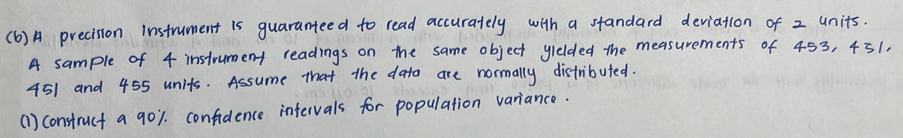 (b) A precision instrument is guaranteed to read accurately with a standard deviation of 2 units.
A sample of 4 instrument readings on the same object yielded the measurements of 453, 431,
451 and 455 units. Assume that the data are normally distributed.
(i) Construct a 90% confidence intervals for population variance.